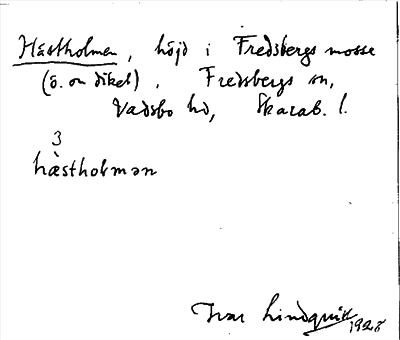 Hästholmen, höjd i Fredsbergs mosse
(ö. om diket), Fredsbergs sn,
Vadsbo hd, Skarab. l.
3
hàstholmən
Ivar Lindquist 1928